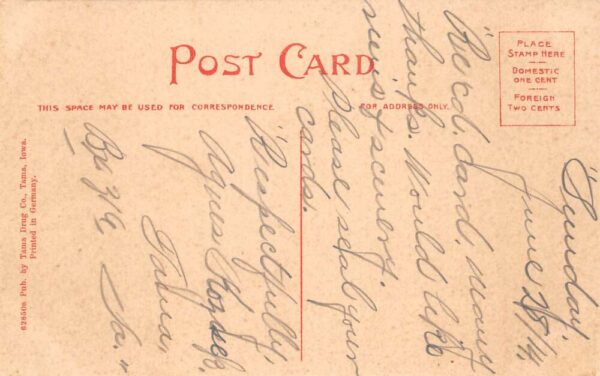 POST CARD
THIS SPACE MAY BE USED FOR CORRESPONDENCE.
FOR ADDRESS ONLY.
PLACE
STAMP HERE
DOMESTIC
ONE CENT
FOREIGN
TWO CENTS
62850a Pub. by Tama Drug Co., Tama, Iowa.
Printed in Germany.
"Sunday.
June 28/14
Rec'd. card. many
thanks. Would like
& scenery.
Please seal your
cards.
Respectfully,
Agnes
Tama,
Ia."
Bx 79